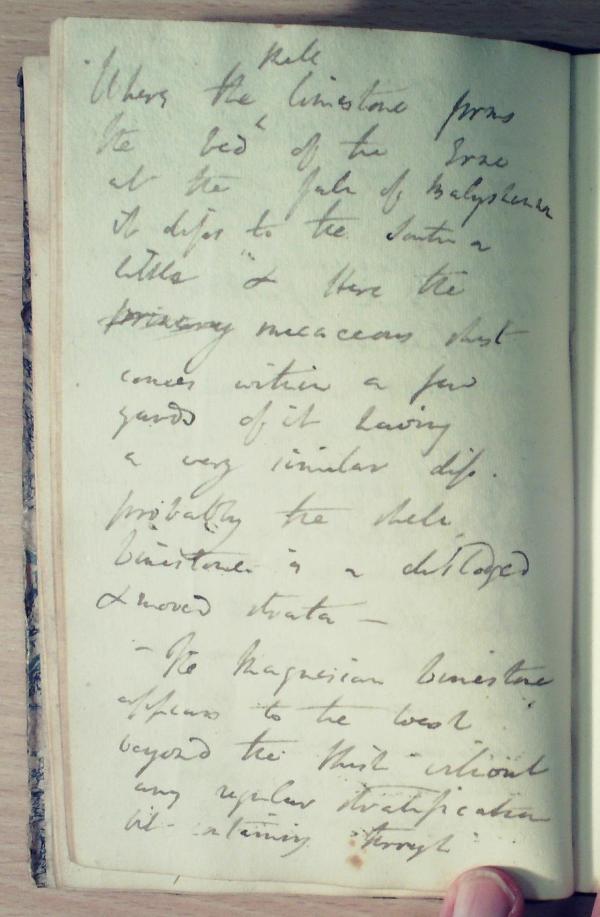 shell
Where the limestone forms
the bed of the Erne
at the falls of Balyshannon
it dips to the South a
little & Here the
primary micaceous shist
comes within a few
yards of it having
a very similar dip.
probably the shell
limestone is a dislodged
& moved strata —
— The Magnesian limestone
appears to the west
beyond the shist without
any regular stratification
but